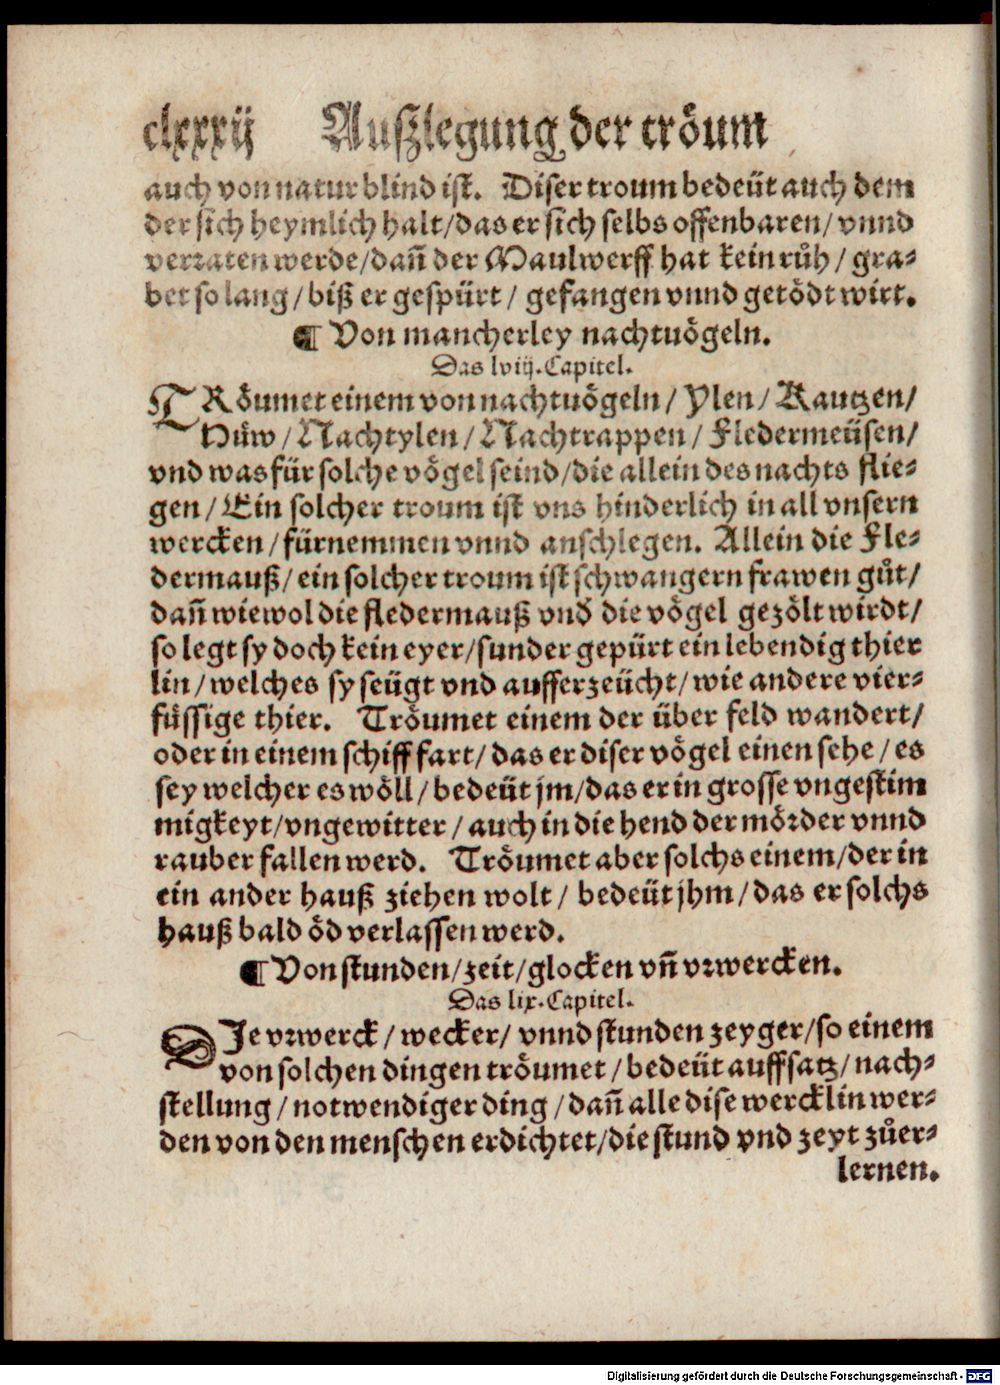 clxxxij Auſzlegung der tröum
auch von natur blind iſt. Diſer troum bedeüt auch dem
der ſich heymlich halt/das er ſich ſelbs offenbaren/ vnnd
verraten werde/dañ der Maulwerff hat kein růh/ gra⸗
bet ſo lang/ biß er geſpürt/ gefangen vnnd getödt wirt.
¶ Von mancherley nachtuögeln.
Das lviij. Capitel.
TRöumet einem von nachtuögeln/ Ylen/ Kautzen/
Hüw/ Nachtylen/ Nachtrappen/ Fledermeüſen/
vnd was für ſolche vögel ſeind/die allein des nachts flie⸗
gen/ Ein ſolcher troum iſt vns hinderlich in all vnſern
wercken/ fürnemmen vnnd anſchlegen. Allein die Fle⸗
dermauß/ ein ſolcher troum iſt ſchwangern frawen gůt/
dañ wiewol die fledermauß vnď die vögel gezölt wirdt/
ſo legt ſy doch kein eyer/ſunder gepürt ein lebendig thier
lin/ welches ſy ſeügt vnd aufferzeücht/ wie andere vier⸗
füſſige thier. Tröumet einem der über feld wandert/
oder in einem ſchiff fart/ das er diſer vögel einen ſehe/ es
ſey welcher es wöll/ bedeüt jm/das er in groſſe vngeſtim
migkeyt/vngewitter/ auch in die hend der mörder vnnd
rauber fallen werd. Tröumet aber ſolchs einem/der in
ein ander hauß ziehen wolt/ bedeüt jhm/das er ſolchs
hauß bald öd verlaſſen werd.
¶ Von ſtunden/zeit/glocken vñ vꝛwercken.
Das lix. Capitel.
DIe vꝛwerck/ wecker/ vnnd ſtunden zeyger/ſo einem
von ſolchen dingen tröumet/ bedeüt auffſatz/ nach⸗
ſtellung/ notwendiger ding/ dañ alle diſe wercklin wer⸗
den von den menſchen erdichtet/die ſtund vnd zeyt zůer⸗
lernen.
Digitalisierung gefördert durch die Deutsche Forschungsgemeinschaft - DFG